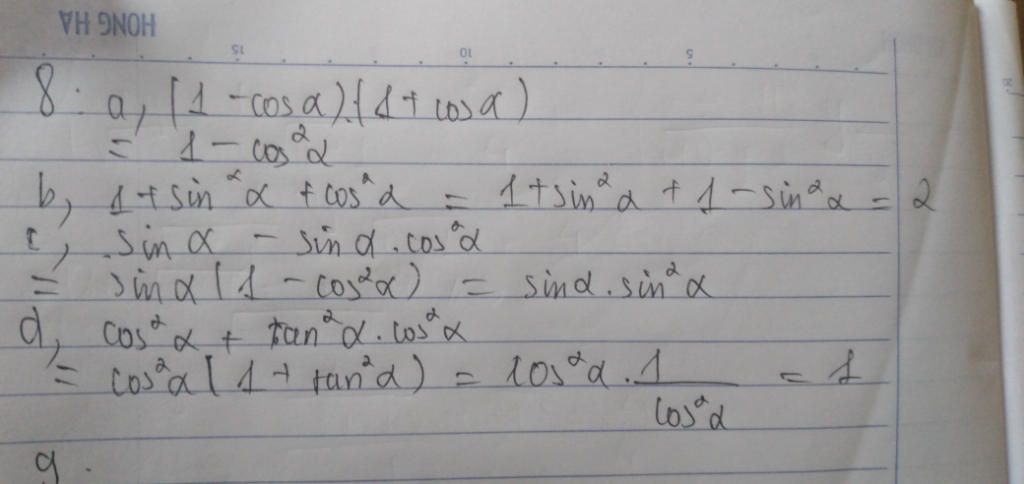 HONG HA
15 10 5
8: a, (1 - cosα).(1 + cosα)
= 1 - cos²α
b, 1 + sin²α + cos²α = 1 + sin²α + 1 - sin²α = 2
c, sin α - sin α . cos²α
= sin α (1 - cos²α) = sin α . sin²α
d, cos²α + tan²α . cos²α
= cos²α (1 + tan²α) = cos²α . 1/cos²α = 1
9.